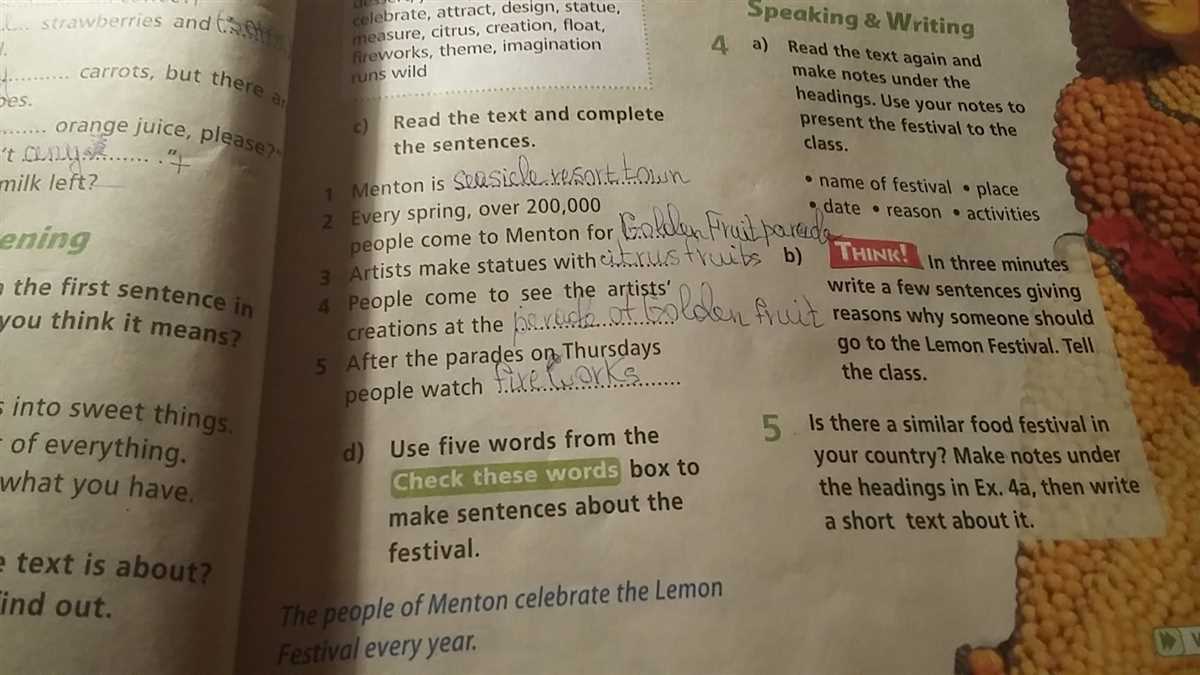 strawberries and
carrots, but there
orange juice, please?"
't any
milk left?
ening
the first sentence in
you think it means?
into sweet things.
of everything.
what you have.
text is about?
ind out.
celebrate, attract, design, statue,
measure, citrus, creation, float,
fireworks, theme, imagination
runs wild
c) Read the text and complete
the sentences.
1 Menton is seaside resort town
2 Every spring, over 200,000
people come to Menton for Golden Fruit parade
3 Artists make statues with citrus fruits
4 People come to see the artists'
creations at the parade of Golden fruit
5 After the parades on Thursdays
people watch fireworks
d) Use five words from the
Check these words box to
make sentences about the
festival.
The people of Menton celebrate the Lemon
Festival every year.
Speaking & Writing
4 a) Read the text again and
make notes under the
headings. Use your notes to
present the festival to the
class.
• name of festival • place
• date • reason • activities
b) THINK! In three minutes
write a few sentences giving
reasons why someone should
go to the Lemon Festival. Tell
the class.
5 Is there a similar food festival in
your country? Make notes under
the headings in Ex. 4a, then write
a short text about it.